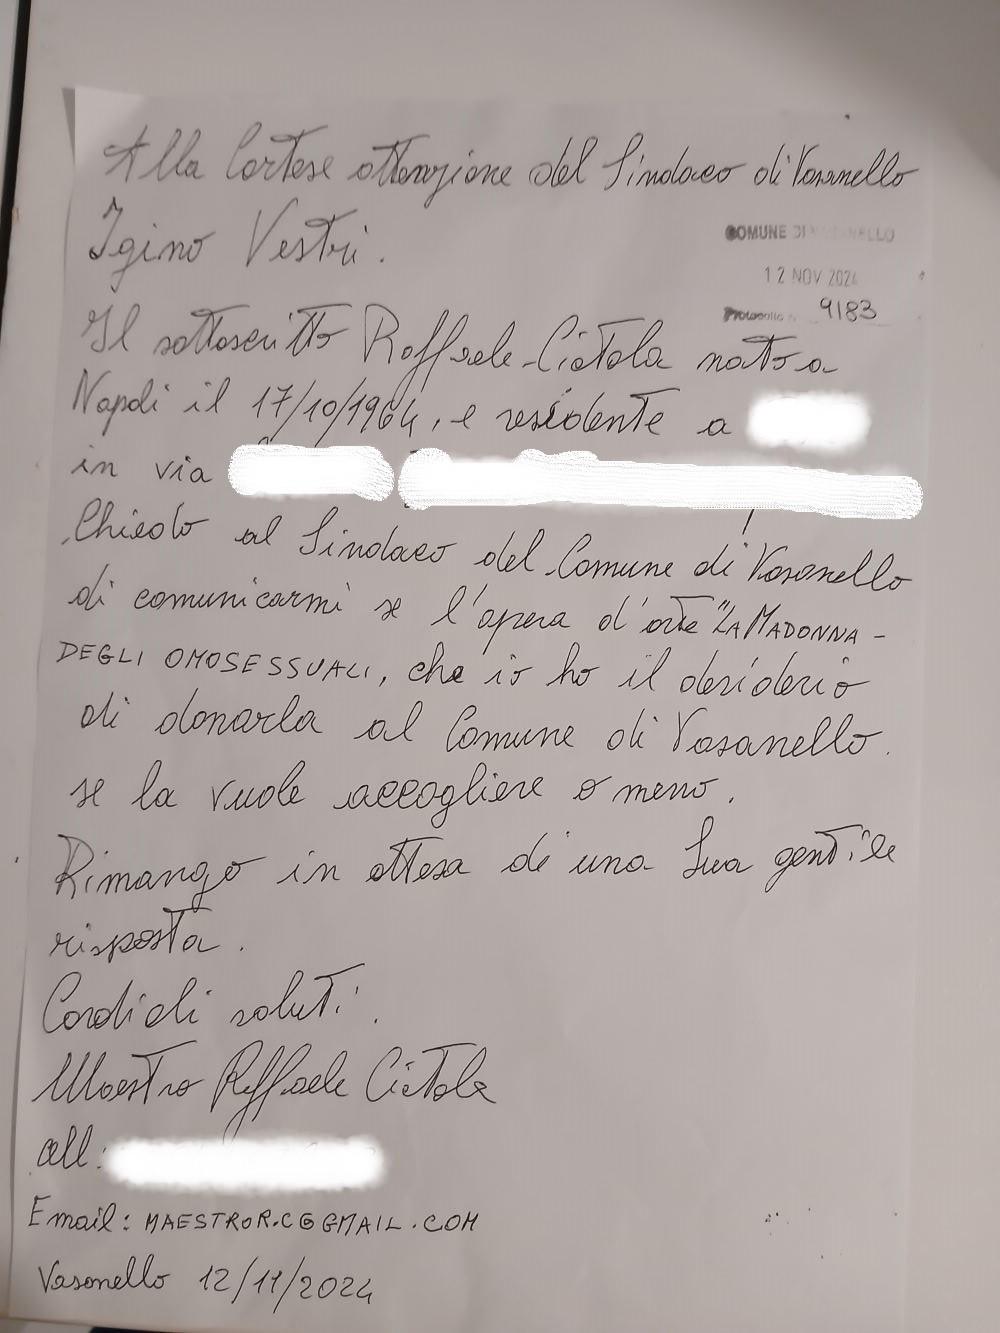 Alla Cortese attenzione del Sindaco di Vasanello
Igino Vestri.
COMUNE DI VASANELLO
12 NOV 2024
Protocollo n. 9183
Il sottoscritto Raffaele Ciotola nato a
Napoli il 17/10/1964, e residente a
in via
Chiedo al Sindaco del Comune di Vasanello
di comunicarmi se l'opera d'arte "LA MADONNA -
DEGLI OMOSESSUALI, che io ho il desiderio
di donarla al Comune di Vasanello.
se la vuole accogliere o meno.
Rimango in attesa di una Sua gentile
risposta.
Cordiali saluti.
Maestro Raffaele Ciotola
cell:
Email: MAESTROR.C@GMAIL.COM
Vasanello 12/11/2024